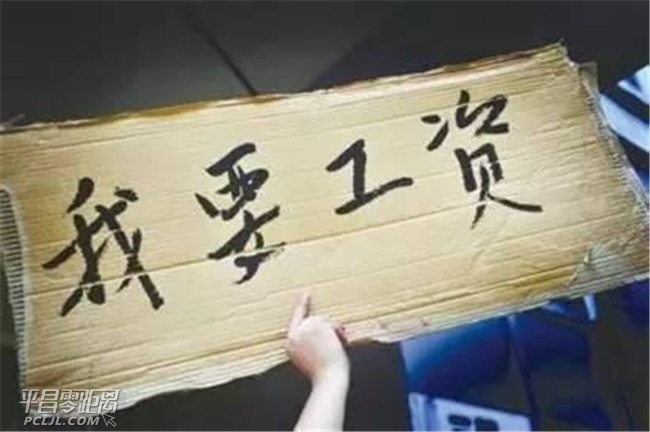 我要工资
平昌零距离
PCLJL.COM